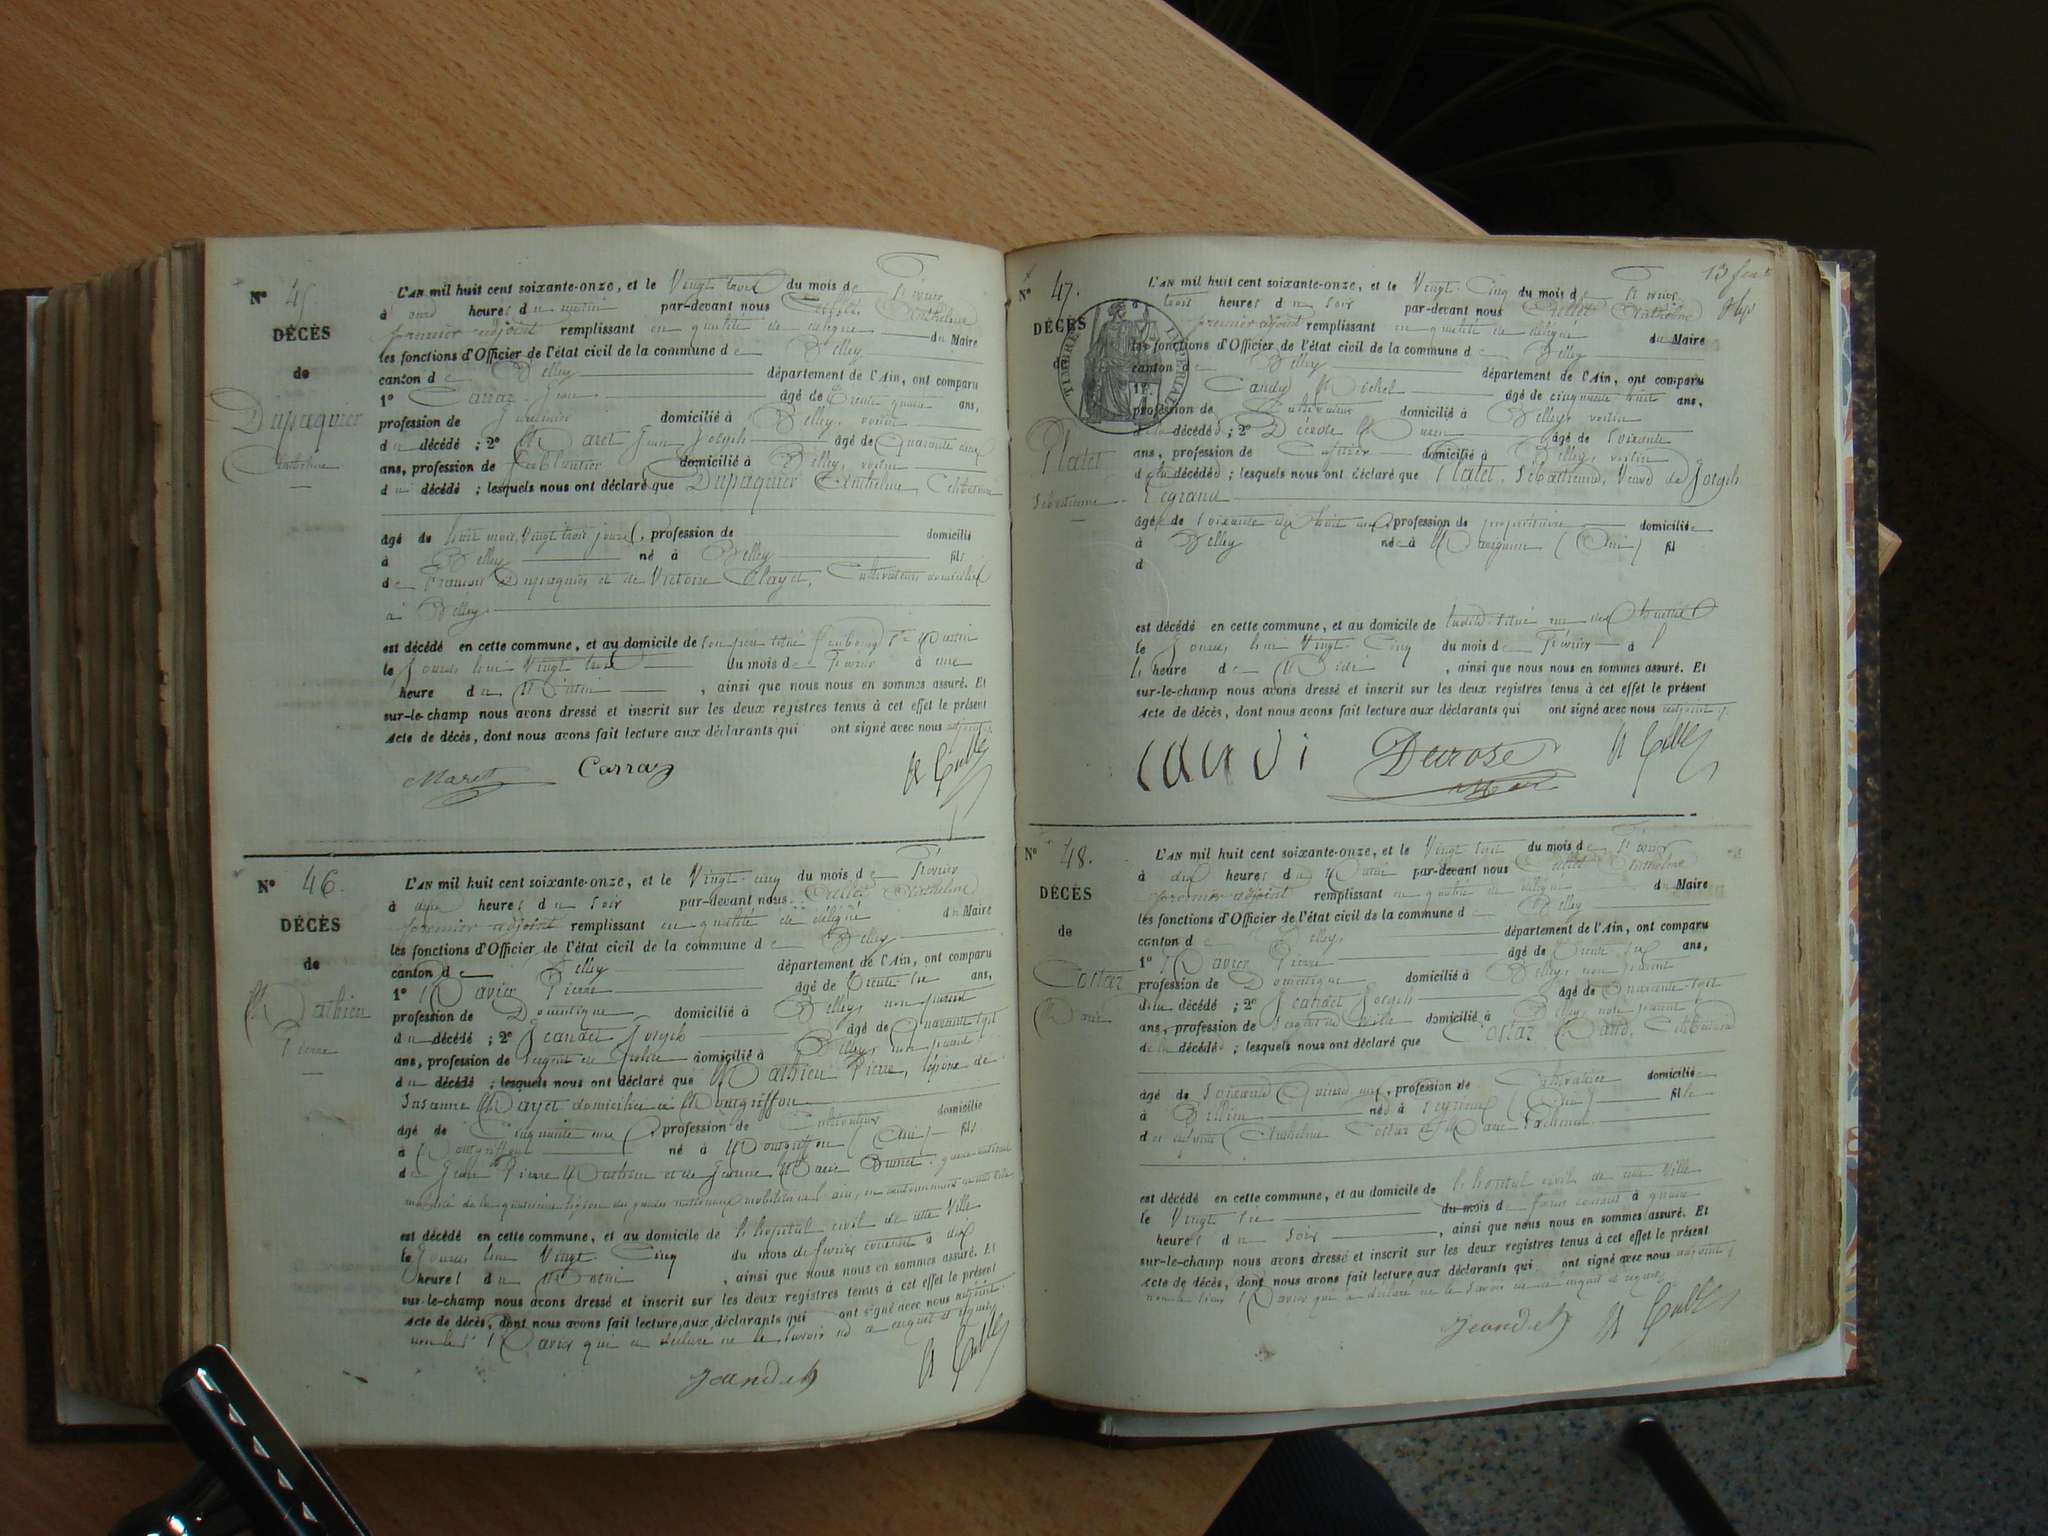 N° 45
DÉCÈS
de
Dupaquier
Anthelme
L'AN mil huit cent soixante-onze, et le Vingt trois du mois de Février
à onze heures du matin par-devant nous Cullet Anthelme
premier adjoint remplissant en qualité de délégué du Maire
les fonctions d'Officier de l'état civil de la commune de Belley
canton de Belley département de l'Ain, ont comparu
1° Carraz Jean âgé de trente quatre ans,
profession de domicilié à Belley, voisin
du décédé ; 2° Maret Jean Joseph âgé de Quarante deux
ans, profession de ferblantier domicilié à Belley, voisin
du décédé ; lesquels nous ont déclaré que Dupaquier Anthelme, Célibataire
âgé de huit mois, vingt trois jours, profession de domicilié
à Belley né à Belley fils
de François Dupaquier et de Victoire Clayet, Cultivateurs domiciliés
à Belley
est décédé en cette commune, et au domicile de son père situé faubourg St Martin
le Jourd'hui Vingt trois du mois de Février à une
heure du Matin , ainsi que nous nous en sommes assuré. Et
sur-le-champ nous avons dressé et inscrit sur les deux registres tenus à cet effet le présent
Acte de décès, dont nous avons fait lecture aux déclarants qui ont signé avec nous adjoint.
Maret Carraz
N° 46.
DÉCÈS
de
Mathieu
Pierre
L'AN mil huit cent soixante-onze, et le Vingt-cinq du mois de Février
à deux heures du soir par-devant nous Cullet Anthelme
premier adjoint remplissant en qualité de délégué du Maire
les fonctions d'Officier de l'état civil de la commune de Belley
canton de Belley département de l'Ain, ont comparu
1° Pavier Pierre âgé de trente-six ans,
profession de Domestique domicilié à Belley non parent
du décédé ; 2° Jeandet Joseph âgé de Quarante-sept
ans, profession de sergent de Police domicilié à Belley, non parent
du décédé ; lesquels nous ont déclaré que Mathieu Pierre, époux de
Susanne Mayet domiciliée à Montgriffon
âgé de Cinquante ans, profession de Cultivateur domicilié
à Montgriffon né à Montgriffon (Ain) fils
de Jean Pierre Mathieu et de Jeanne Marie Brunet, garde national
mobilisé de la quatrième légion des gardes nationaux mobilisés de l'ain, en cantonnement en cette ville
est décédé en cette commune, et au domicile de l'hopital civil de cette Ville
le Jourd'hui Vingt Cinq du mois de février courant à dix
heures du Matin , ainsi que nous nous en sommes assuré. Et
sur-le-champ nous avons dressé et inscrit sur les deux registres tenus à cet effet le présent
Acte de décès, dont nous avons fait lecture aux déclarants qui ont signé avec nous adjoint
non le sr Pavier qui a déclaré ne le savoir de ce enquis et requis
Jeandet
13 feuil
N° 47.
DÉCÈS
de
TIMBRE IMPERIAL
Platet
Sébastienne
L'AN mil huit cent soixante-onze, et le Vingt-Cinq du mois de Février
à trois heures du soir par-devant nous Cullet Anthelme
premier adjoint remplissant en qualité de délégué du Maire
les fonctions d'Officier de l'état civil de la commune de Belley
canton de Belley département de l'Ain, ont comparu
1° Candy Michel âgé de cinquante huit ans,
profession de Cultivateur domicilié à Belley, voisin
de la décédée ; 2° Décrose âgé de soixante
ans, profession de domicilié à Belley, voisin
de la décédée ; lesquels nous ont déclaré que Platet, Sébastienne, Veuve de Joseph
Legrand
âgée de soixante dix huit ans, profession de propriétaire domiciliée
à Belley née à (Ain) fil
d
est décédé en cette commune, et au domicile de situé rue des
le Jourd'hui Vingt Cinq du mois de Février à
heure de Midi , ainsi que nous nous en sommes assuré. Et
sur-le-champ nous avons dressé et inscrit sur les deux registres tenus à cet effet le présent
Acte de décès, dont nous avons fait lecture aux déclarants qui ont signé avec nous adjoint.
candi Decrose
N° 48.
DÉCÈS
de
Costaz
Marie
L'AN mil huit cent soixante-onze, et le Vingt sept du mois de Février
à dix heures du Matin par-devant nous Cullet Anthelme
premier adjoint remplissant en qualité de délégué du Maire
les fonctions d'Officier de l'état civil de la commune de Belley
canton de Belley département de l'Ain, ont comparu
1° Pavier Pierre âgé de trente six ans,
profession de Domestique domicilié à Belley, non parent
de la décédé ; 2° Jeandet Joseph âgé de Quarante-sept
ans, profession de sergent de ville domicilié à Belley, non parent
de la décédé ; lesquels nous ont déclaré que Costaz Marie, Célibataire
âgé de soixante Quinze ans, profession de Cultivatrice domiciliée
à née à Peyrieu (Ain) fille
de défunts Anthelme Costaz et Marie
est décédé en cette commune, et au domicile de l'hopital civil de cette Ville
le Vingt six du mois de février courant à quatre
heures du Soir , ainsi que nous nous en sommes assuré. Et
sur-le-champ nous avons dressé et inscrit sur les deux registres tenus à cet effet le présent
Acte de décès, dont nous avons fait lecture aux déclarants qui ont signé avec nous adjoint
non le sieur Pavier qui a déclaré ne le savoir de ce enquis et requis
Jeandet